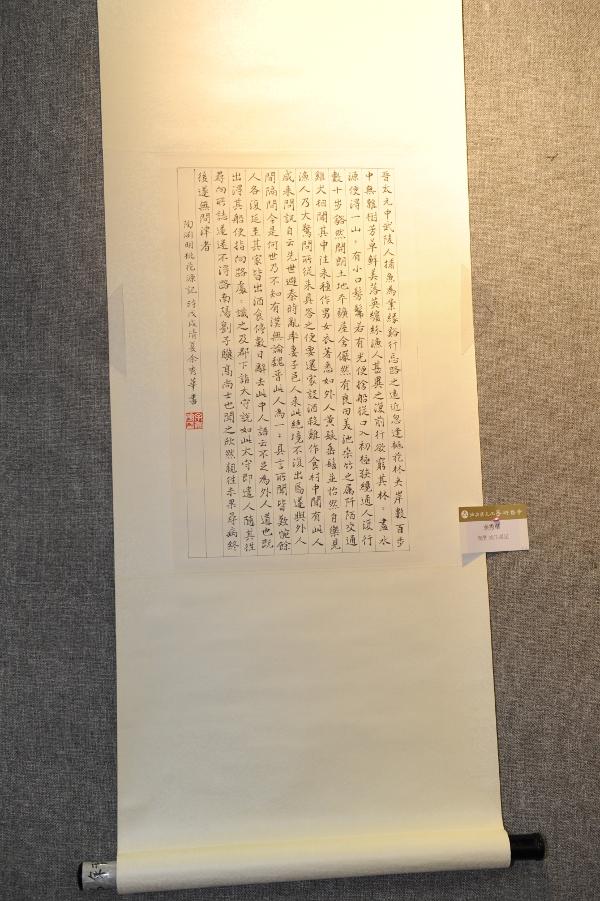 晉太元中武陵人捕魚為業緣谿行忘路之遠近忽逢桃花林夾岸數百步
中無雜樹芳草鮮美落英繽紛漁人甚異之復前行欲窮其林〻盡水
源便得一山有小口髣髴若有光便捨船從口入初極狹纔通人復行
數十步豁然開朗土地平曠屋舍儼然有良田美池桑竹之屬阡陌交通
雞犬相聞其中往來種作男女衣著悉如外人黃髮垂髫並怡然自樂見
漁人乃大驚問所從來具答之便要還家設酒殺雞作食村中聞有此人
咸來問訊自云先世避秦時亂率妻子邑人來此絕境不復出焉遂與外人
間隔問今是何世乃不知有漢無論魏晉此人為一〻具言所聞皆歎惋餘
人各復延至其家皆出酒食停數日辭去此中人語云不足為外人道也既
出得其船便指向路處〻識之及郡下詣太守說如此太守即遣人隨其往
尋向所誌遂迷不得路南陽劉子驥高尚士也聞之欣然親往未果尋病終
後遂無問津者
陶淵明桃花源記 時戊戌清夏余秀華書